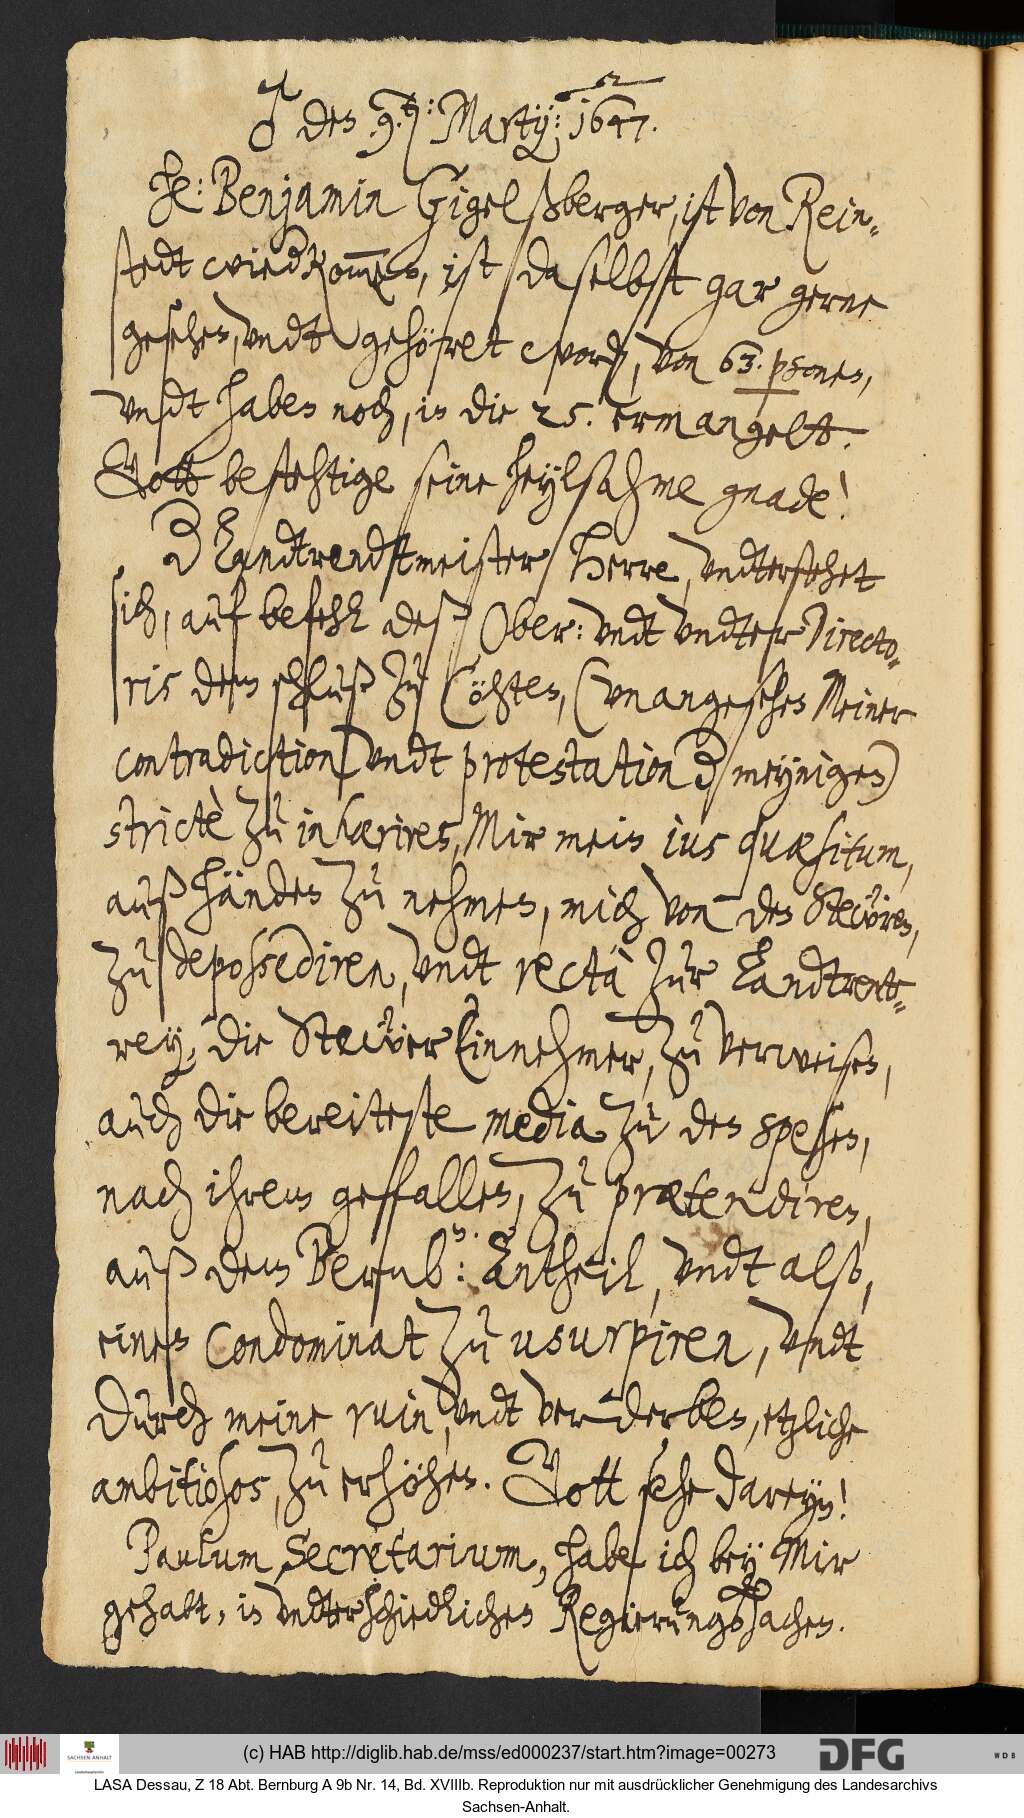 ♂ den 9.ten: Martij: 1647.
He: Benjamin Gigelßberger, ist von Rein-
stedt wiedkom̅en, ist daselbst gar gerne
gesehen, vndt gehöret word[en], von 63. p̲sonen,
vndt haben noch, in die 25. ermangelt.
Gott bestehtige seine heylsahme gnade!
D Landtrendtmeister Herre, vndterstehet
sich, auf befehl deß Ober: vndt vndter Directo-
ris dem schluß zu Cöhten, (vnangesehen Meiner
contradiction vndt protestation d meynigen)
strictè zu inhæriren, Mir mein ius quæsitum,
auß händen zu nehmen, mich von den Stewren,
zu depossediren, vndt rectà zur Landtrent-
rey, die Stewer Einnehmer, zu verweisen,
auch die bereiteste media zu den spesen,
nach ihrem geffallen, zu prætendiren,
auß dem Bernb: Antheil, vndt also,
eines Condominat zu usurpiren, vndt
durch meine ruin, vndt verderben, etzliche
ambitiosos, zu erhöhen. Gott sehe dareyn!
Paulum Secretarium, habe ich bey Mir
gehabt, in vndterschiedlichen Regierungssachen.
(c) HAB http://diglib.hab.de/mss/ed000237/start.htm?image=00273
SACHSEN-ANHALT
DFG
WDB
LASA Dessau, Z 18 Abt. Bernburg A 9b Nr. 14, Bd. XVIIIb. Reproduktion nur mit ausdrücklicher Genehmigung des Landesarchivs
Sachsen-Anhalt.